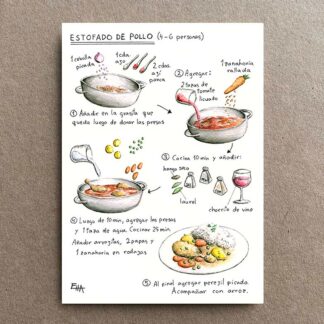 ESTOFADO DE POLLO (4-6 personas)
1 cebolla
picada
1 cda.
ajo
2 cdas.
ají
panca
① Añadir en la grasita que
queda luego de dorar las presas
② Agregar:
2 tazas de
tomate
licuado
1 zanahoria
rallada
③ Cocina 10 min y añadir:
hongo seco
laurel
chorrito de vino
④ Luego de 10 min, agregar las presas
y 1 taza de agua. Cocinar 25 min.
Añadir arvejitas, 2 papas y
1 zanahoria en rodajas
⑤ Al final agregar perejil picado.
Acompañar con arroz.